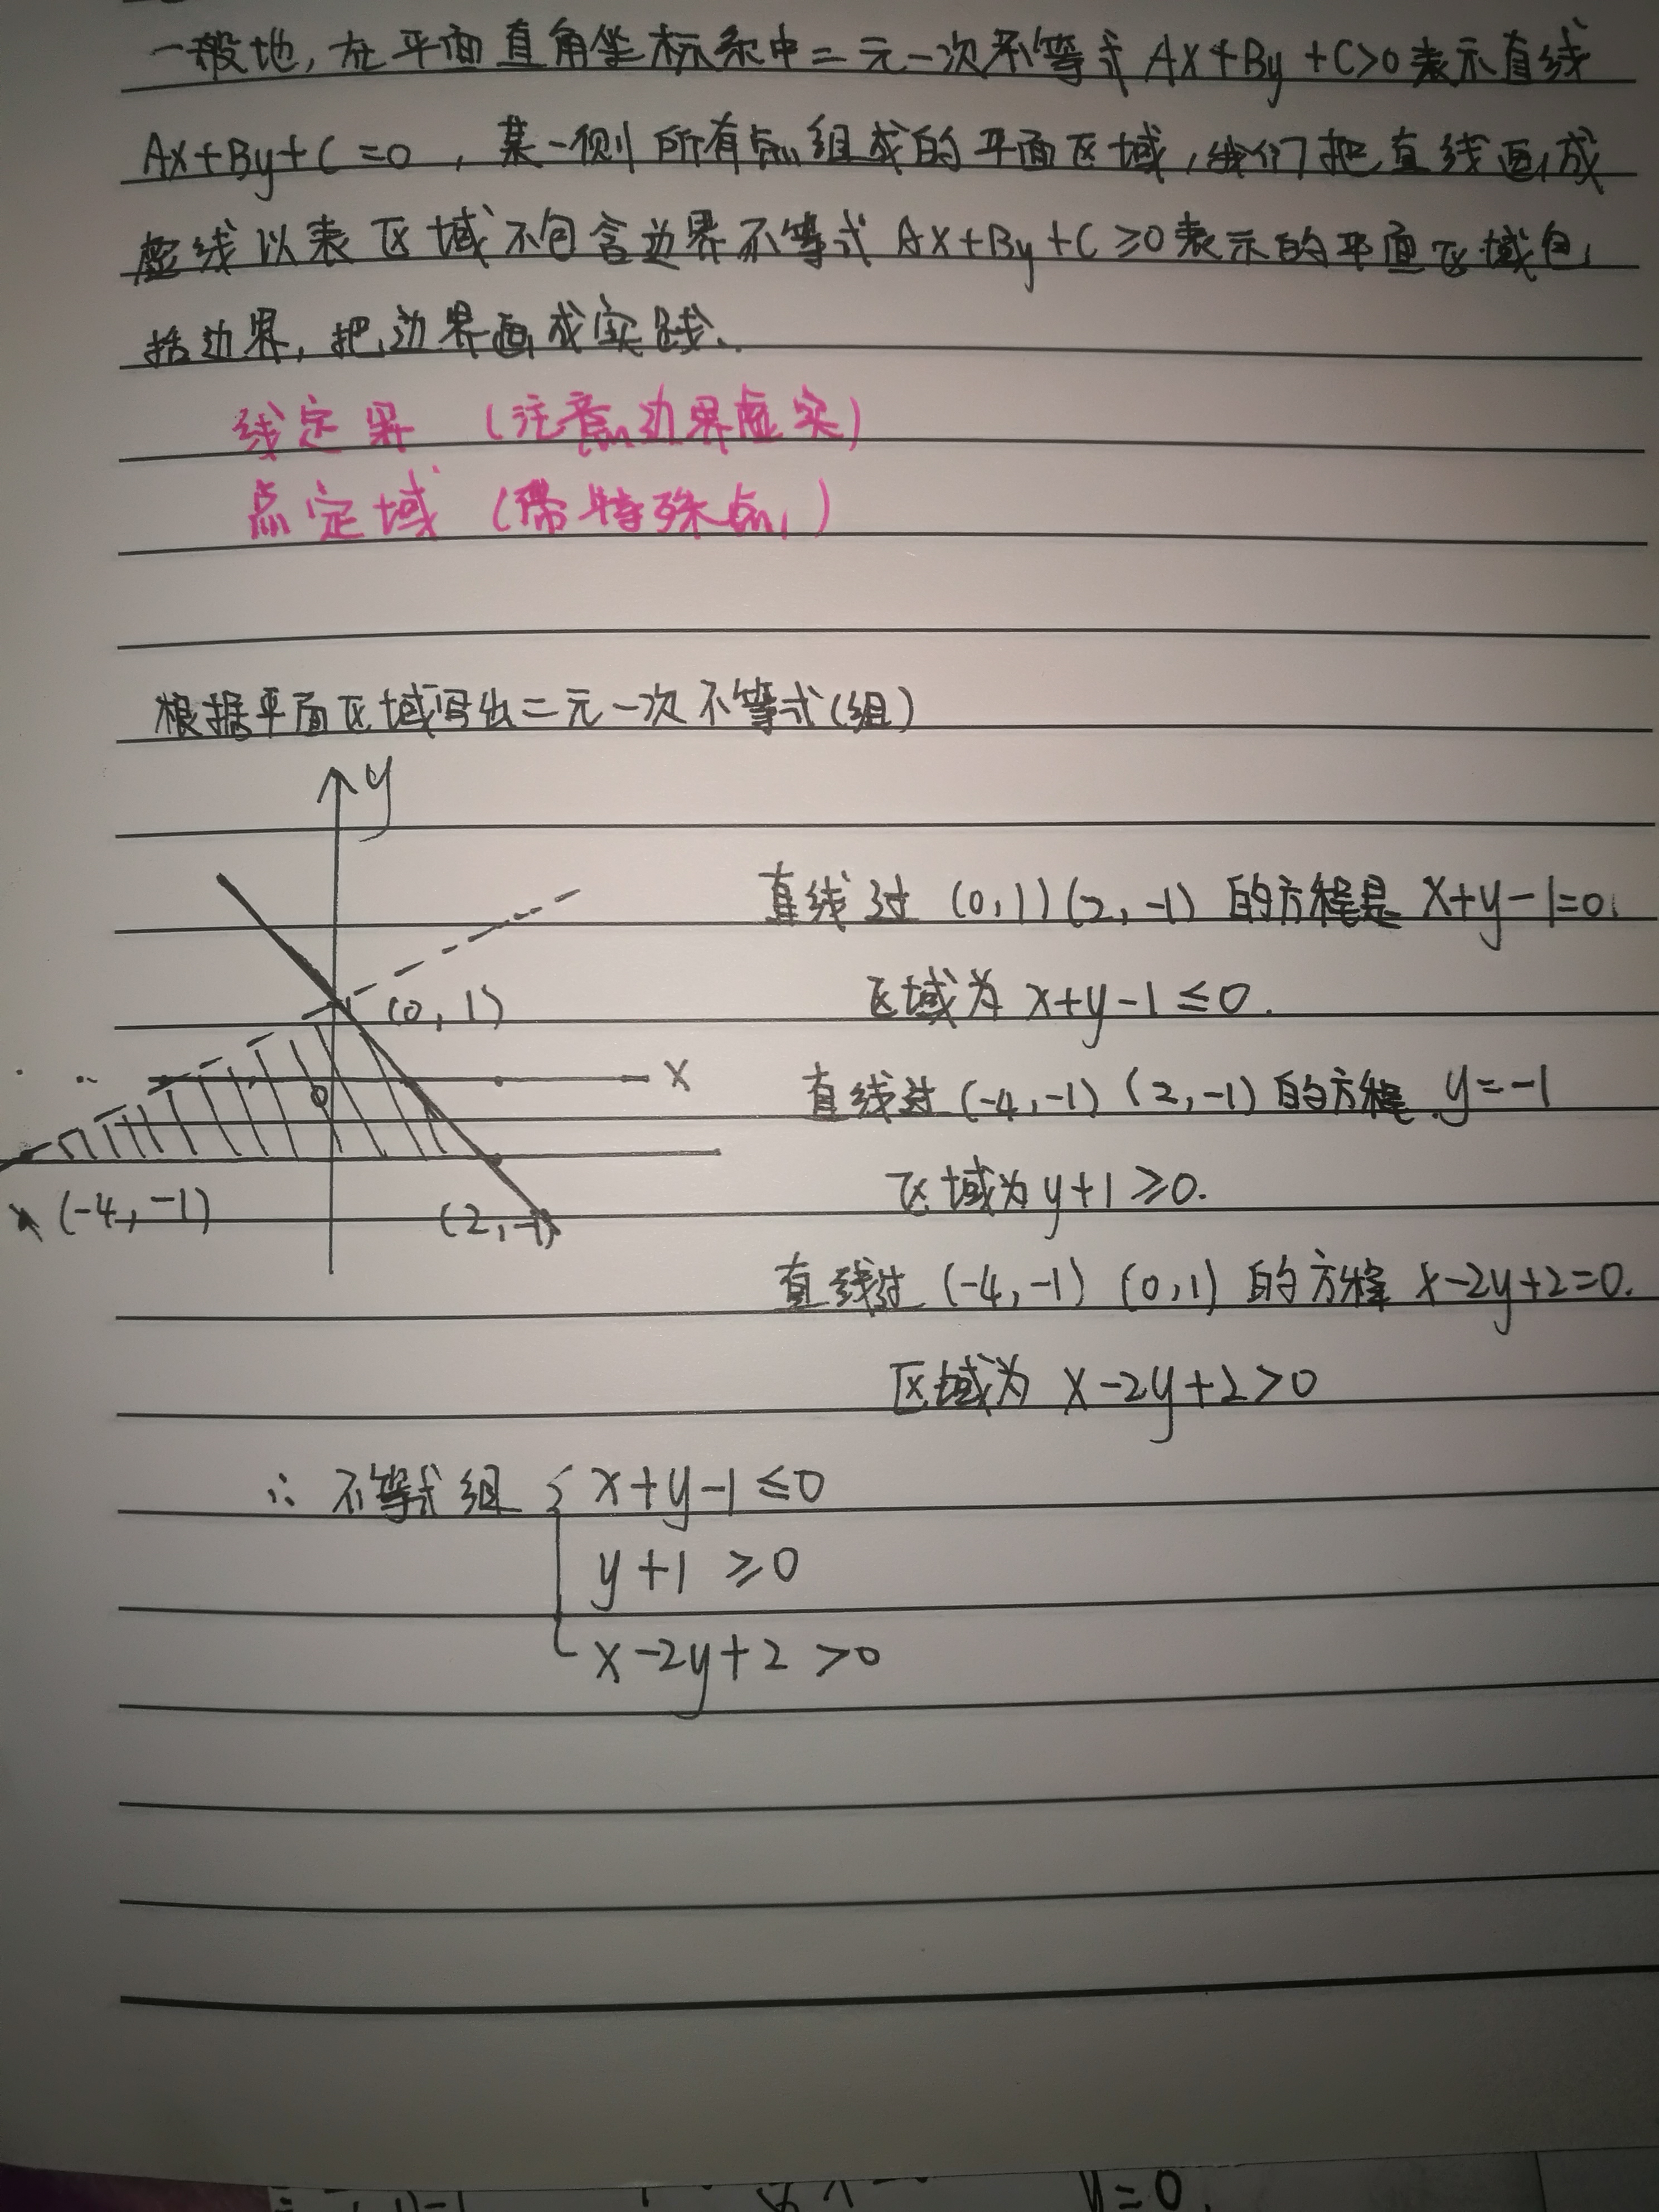 一般地,在平面直角坐标系中二元一次不等式 Ax+By+C>0表示直线
Ax+By+C=0 ,某一侧所有点组成的平面区域,我们把直线画成
虚线以表区域不包含边界不等式 Ax+By+C≥0表示的平面区域包
括边界,把边界画成实线.
线定界 (注意边界虚实)
点定域 (带特殊点)
根据平面区域写出二元一次不等式(组)
y
直线过 (0,1)(2,-1) 的方程是 x+y-1=0.
(0,1)
区域为 x+y-1≤0.
x
直线过(-4,-1)(2,-1)的方程 y=-1
0
区域为y+1≥0.
(-4,-1)
(2,-1)
直线过 (-4,-1) (0,1) 的方程 x-2y+2=0.
区域为 x-2y+2>0
∴ 不等式组 { x+y-1≤0
y+1 ≥0
x-2y+2 >0
y=0.